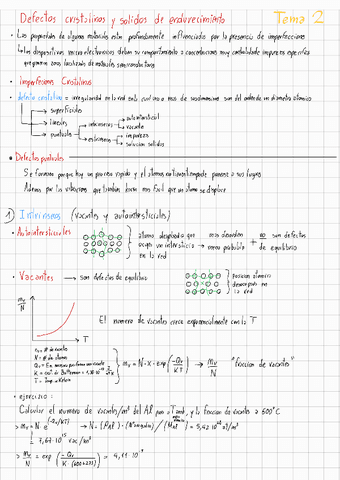 Defectos cristalinos y solidos de endurecimiento
Tema 2
• Las propiedades de algunos materiales estan profundamente influenciadas por la presencia de imperfecciones
↳ Los dispositivos microelectronicos deben su comportamiento a concentraciones muy controladas de impurezas especificas
que generan zonas localizadas de materiales semiconductores
• Imperfecciones Cristalinas
• defecto cristalino = irregularidad en la red en la cual una o mas de sus dimensiones son del orden de un diametro atomico
→ superficiales
→ lineales
→ puntuales → intrinsecos → autointersticial
→ vacante
→ extrinsecos → impureza
→ solucion solidos
• Defectos puntuales
Se forman porque hay un proceso rapido y el atomo no tiene tiempo de ponerse a sus lugares
Ademas por las vibraciones que tambien hacen mas facil que un atomo se desplace
1) Intrinsecos (vacantes y autointersticiales)
• Autointersticiales
atomo desplazado que
ocupa un intersticio
en la red
→ mas desorden
→ menos probable
+ no son defectos
de equilibrio
• Vacantes → son defectos de equilibrio
Posicion atomica
desocupada en
la red
nv
N
T
El numero de vacantes crece exponencialmente con la T
nv = Nº de vacantes
N = Nº de atomos
Qv = En. necesaria para formar una vacante
K = const de Boltzmann = 1,38·10⁻²³ J/at·K
T = Temp. en Kelvin
nv = N · exp(-Qv/KT) → nv/N "fraccion de vacantes"
• ejercicio:
Calcular el numero de vacantes/m³ del Al para Tamb, y la fraccion de vacantes a 600°C
> nv = N e^(-Qv/KT) → N = (ρAl) · (Nº avogadro) / (MAl)